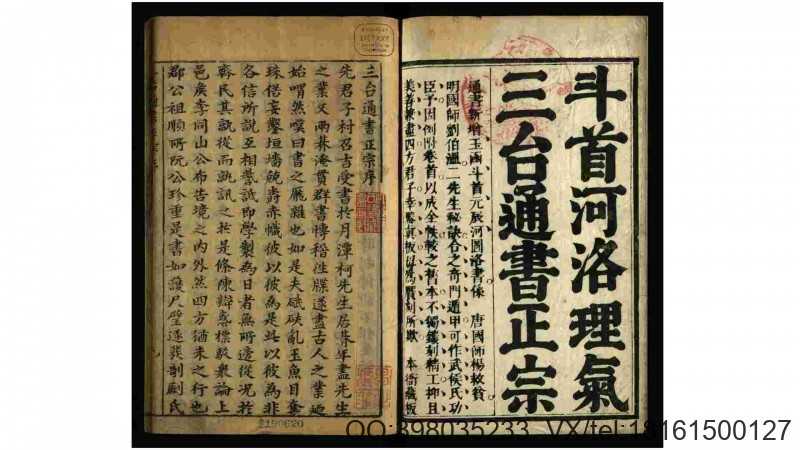 斗首河洛理氣
三台通書正宗
通書新增玉國斗首元辰河圖洛書係 唐國師楊救貧
明國師劉伯溫二先生秘訣合之奇門遁甲可作武侯氏功
臣予因例附卷首以成全帙較之舊本不獨鐫刻精工抑且
美善兼盡四方君子幸鑒原板以為贋刻所欺 本衙藏板
三台通書正宗序
先君子村召吉受書於月潭柯先生居暮年盡先生
之業又兩巷淹貫群書博稽往牒遂盡古人之業廼
始喟然嘆曰書之龐雜也如是夫珷玞亂玉魚目奪
珠倍妄鑿垣墻競壽赤幟彼以彼為是此以彼為非
各信所說互相詆即學製為日者無所適從況於
齊民其訛從而訊之於是條陳辯惑標衆論上
邑矦李同山公布告境之內外然四方猶未之行也
郡公祖順所阮公珍重是書如護尺璧遂發剞劂氏
2190620
QQ:398035233 VX/tel:18161500127